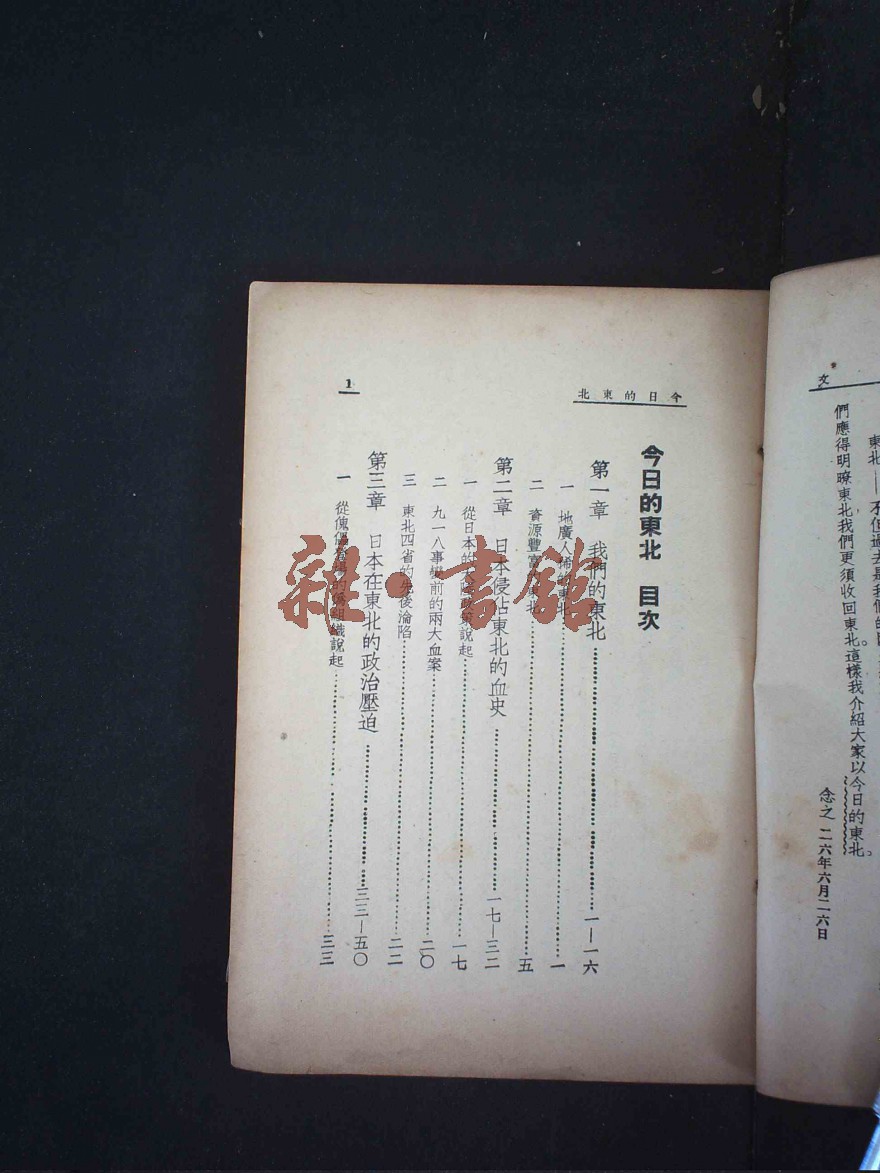 文
東北——不但過去是我們的
們應得明瞭東北我們更須收回東北。這樣我介紹大家以今日的東北。
念之 二六年六月二六日
今日的東北
1
今日的東北 目次
第一章 我們的東北 一—一六
一 地廣人稀的東北 一
二 資源豐富 五
第二章 日本侵佔東北的血史 一七—三二
一 從日本的大陸政策說起 一七
二 九一八事變前的兩大血案 二〇
三 東北四省的先後淪陷 二二
第三章 日本在東北的政治壓迫 三三—五〇
一 從傀儡登場的偽組織說起 三三
雜·書館